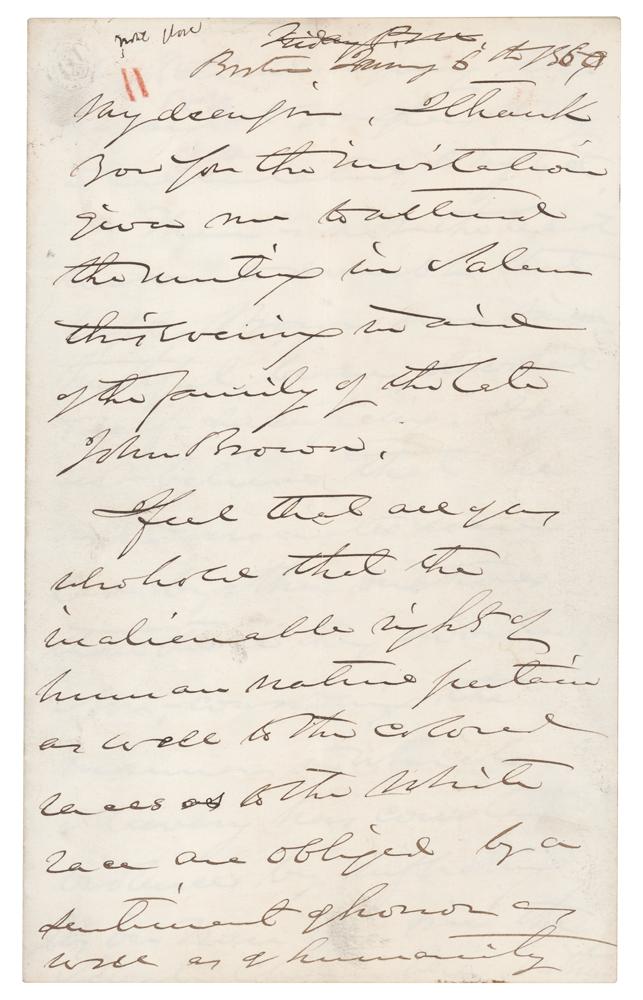 Friday P.M.
Boston January 6th 1860
My dear Sir, I thank
you for the invitation
given me to attend
the meeting in Salem
this evening in aid
of the family of the late
John Brown.
I feel that all of us
who hold that the
inalienable rights of
human nature pertain
as well to the colored
races as to the white
race are obliged by a
sentiment of honor as
well as of humanity